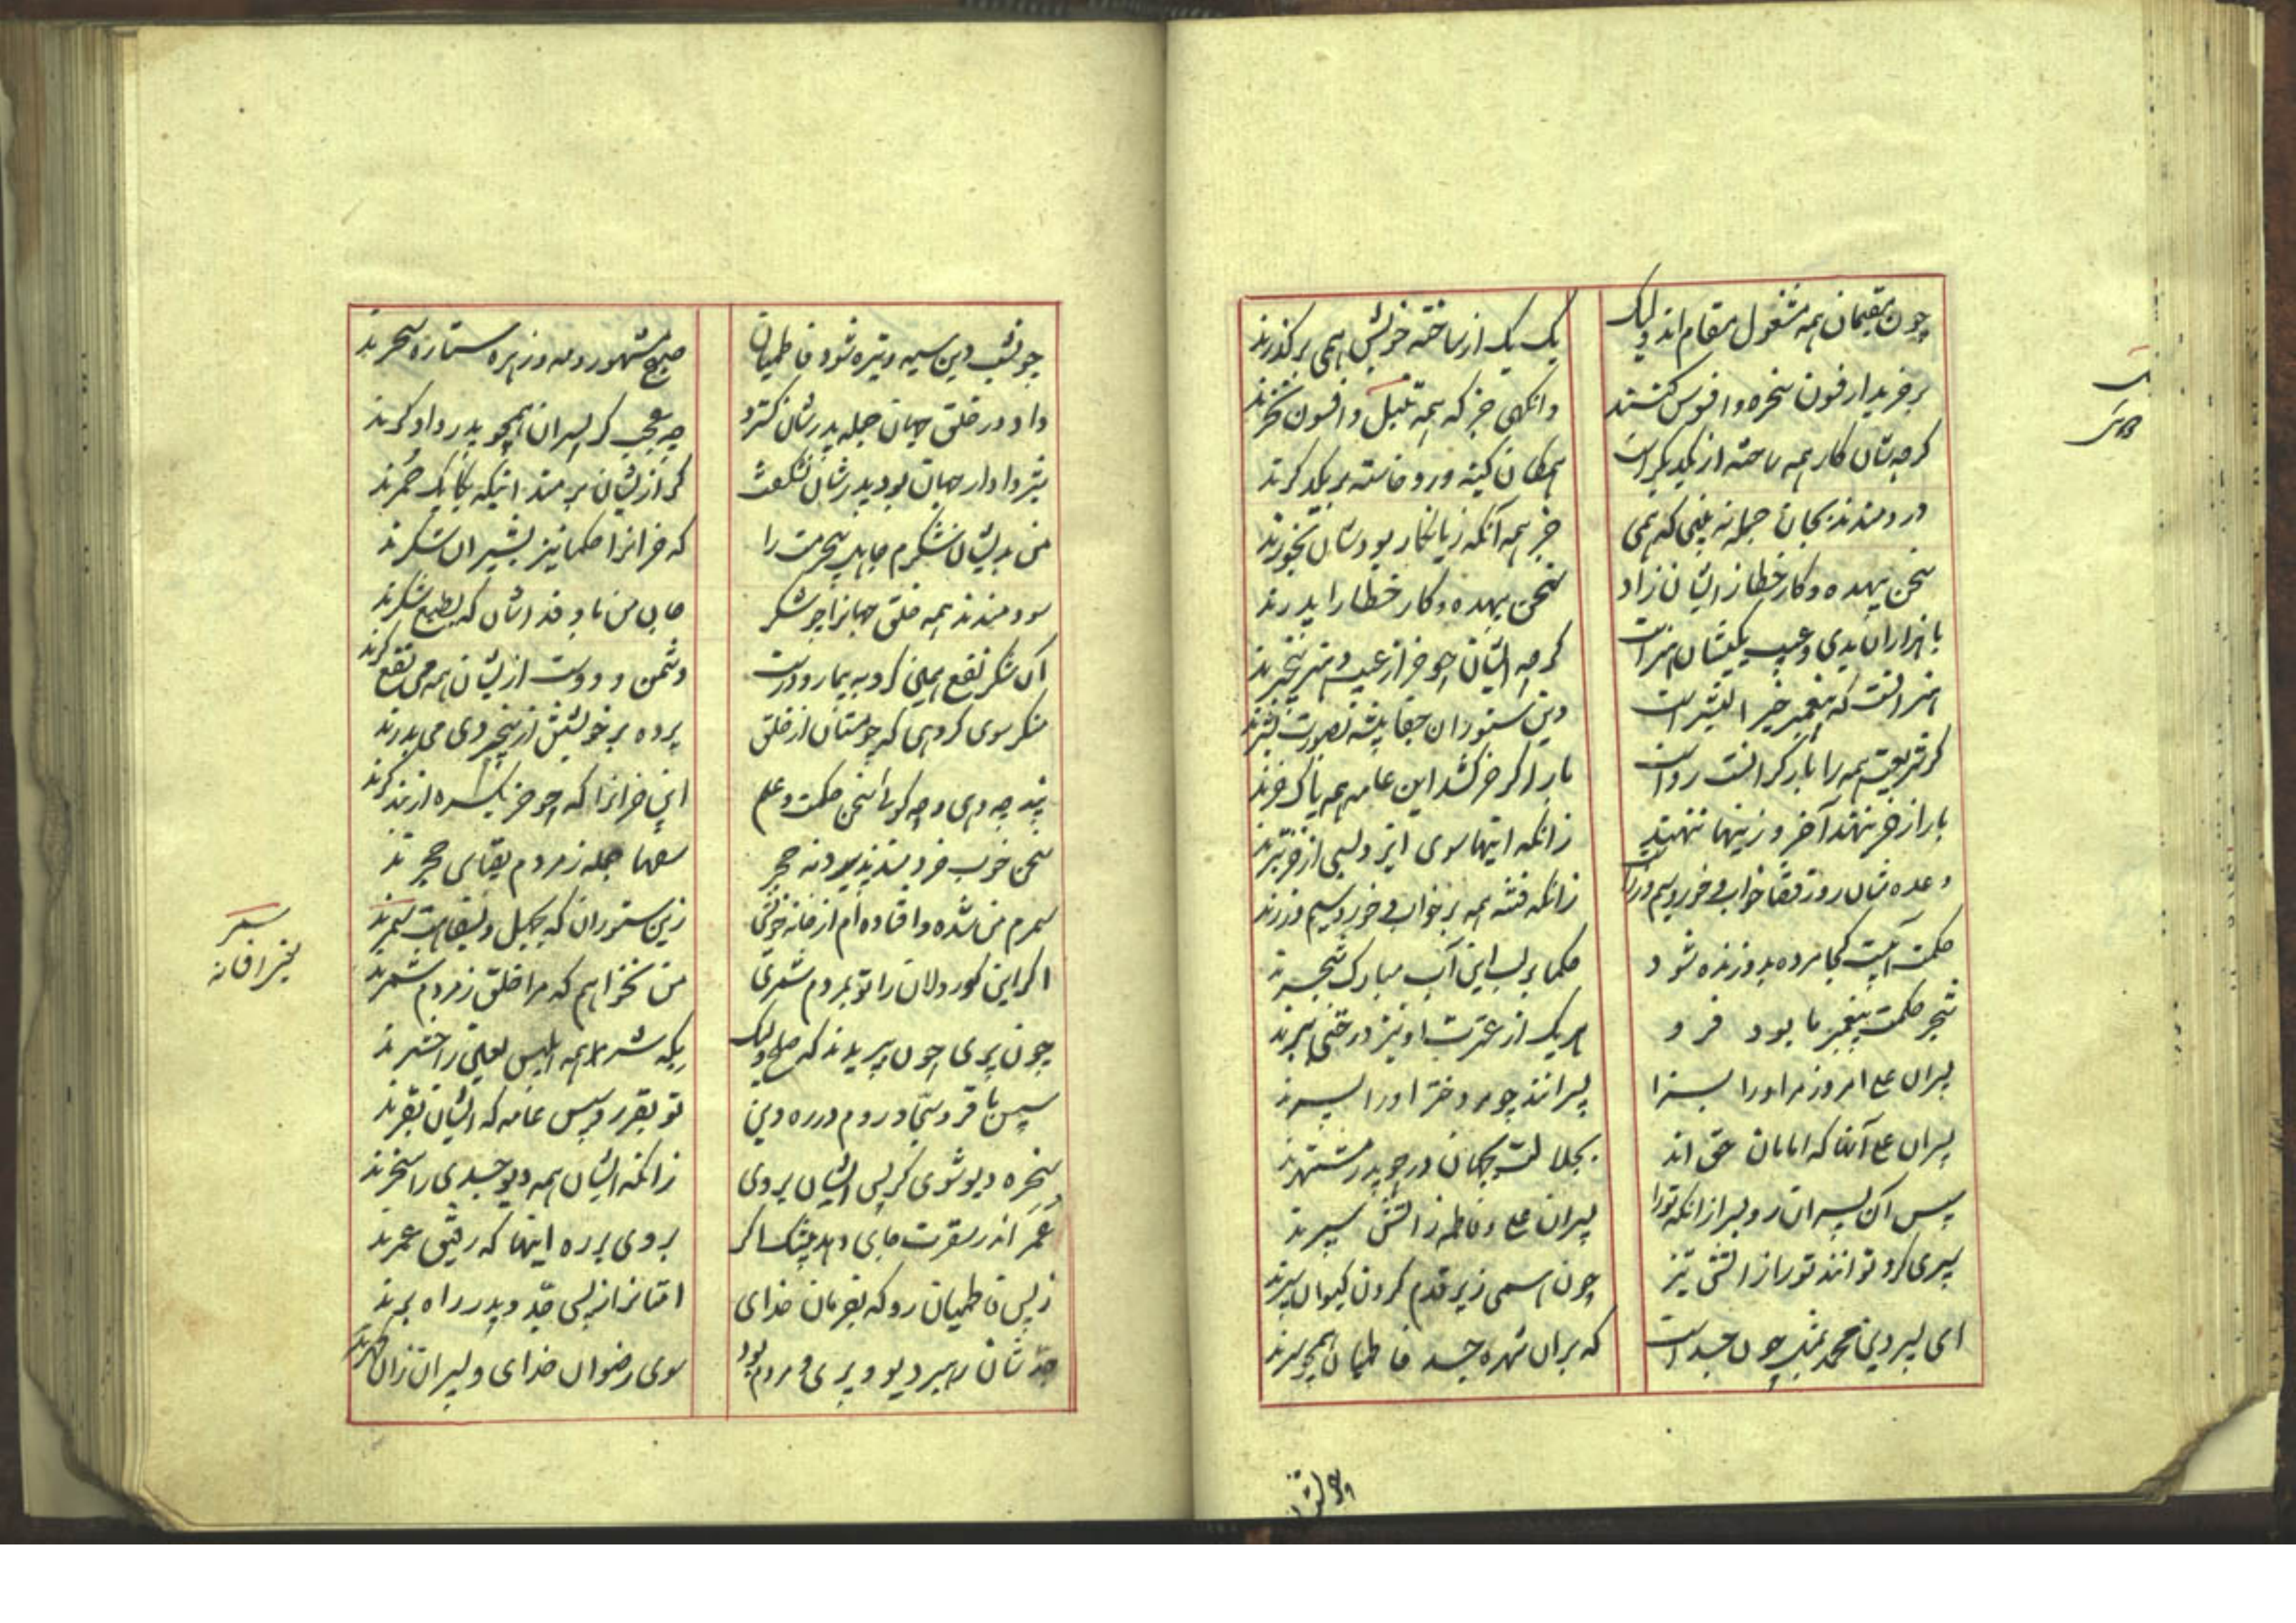 چون مقیمان همه مشغول مقام اند ولیک
یک یک از ساخته خویش همی برگذرند
بر خریدار فسون سخره و افسوس کنند
وانگهی جز که همه تنبل و افسون نخرند
کرچه شان کار همه ساخته از یکدیکر است
همکان کینه ور و خاسته بر یکدکرند
دردمندند بجان جمله نه بینی که همی
جز همه آنکه زیانکار بودشان نخورند
سخن بیهده و کار خطا زایشان زاد
سخن بیهده و کار خطا را پدرند
با هزاران بدی و عیب یکیشان هنر است
کرچه ایشان چو خر از عیب و هنر بیخبرند
هنر آنست که پیغمبر خیر البشر است
وین ستوران جفا پیشه بصورت بشرند
کر شریعت همه را بار کرانست رواست
بار اکر خر کشد این عامه همه پاک خرند
بار از خر بنهند آخر و زینها ننهند
زانکه اینها سوی ایزد بسی از خر بترند
وعده شان روز قضا خواب و خور و سیم و زر است
زانکه فتنه همه بر خواب و خور و سیم و زرند
حکمت آبیست کجا مرده بدو زنده شود
حکما بر لب این آب مبارک شجرند
شجر حکمت پیغمبر ما بود و فرو
هر یک از عترت او نیز درختی ببرند
پسران علی امروز مر او را بسزا
پسرانند چو مر دختر او را پسرند
پسران علی آنها که امامان حق اند
بجلالت بجهان در چو پدر مشتهرند
سپس آن پسران رو پسر از آنکه تو را
پسران علی و فاطمه زاتش سپرند
سپری کرد توانند تو را زاتش تیز
چون همی زیر قدم کردن کیوان سپرند
ای پسر دین محمد بمثل چون جسد است
که بران شهره جسد فاطمیان همچو سرند
چو نشب دین سیه و تیره شود فاطمیان
صبح مشهور و مه و زهره ستاره سحرند
داد در خلق جهان جمله پدرشان کسترد
چه عجب کر پسران همچو پدر دادکرند
من بدیشان شکرم جاهل بیحرمت را
که خرانرا حکما نیز بشیران شکرند
سودمندند همه خلق جهانرا چو شکر
دشمن و دوست از یشان همه می نفع کرند
منکر سوی کروهی که چو مستان از خلق
پرده بر خویشتن از بیخردی می بدرند
پند چه دهی و چه کوئی سخن حکمت و علم
این خرانرا که چو خر یکسره از پند کرند
سخن خوب خردمند پذیرد نه حجر
سفها جمله ز مردم بقیاس حجرند
سمرم من شده و افتاده ام از خانه خویش
زین ستوران که بجهل و بسفاهت سمرند
اکر این کور دلان را تو بمردم شمری
من نخواهم که مرا خلق ز مردم شمرند
چون پری چون بپریدند که صلح ولیک
سپس باقر و سجاد روم در ره دین
تو بقر رو سپس عامه که ایشان بقرند
سخره دیو شوی کر پس ایشان بروی
زانکه ایشان همه دیو جسدی را سخرند
عمر اندر سقرت جای دهد بیشک اکر
بروی بر ره اینها که رفیق عمرند
ز پس فاطمیان رو که بفرمان خدای
امتانرا ز پس جد و پدر راه برند
جدشان رهبر دیو و پری و مردم بود
سوی رضوان خدای و پسران زان کهرند